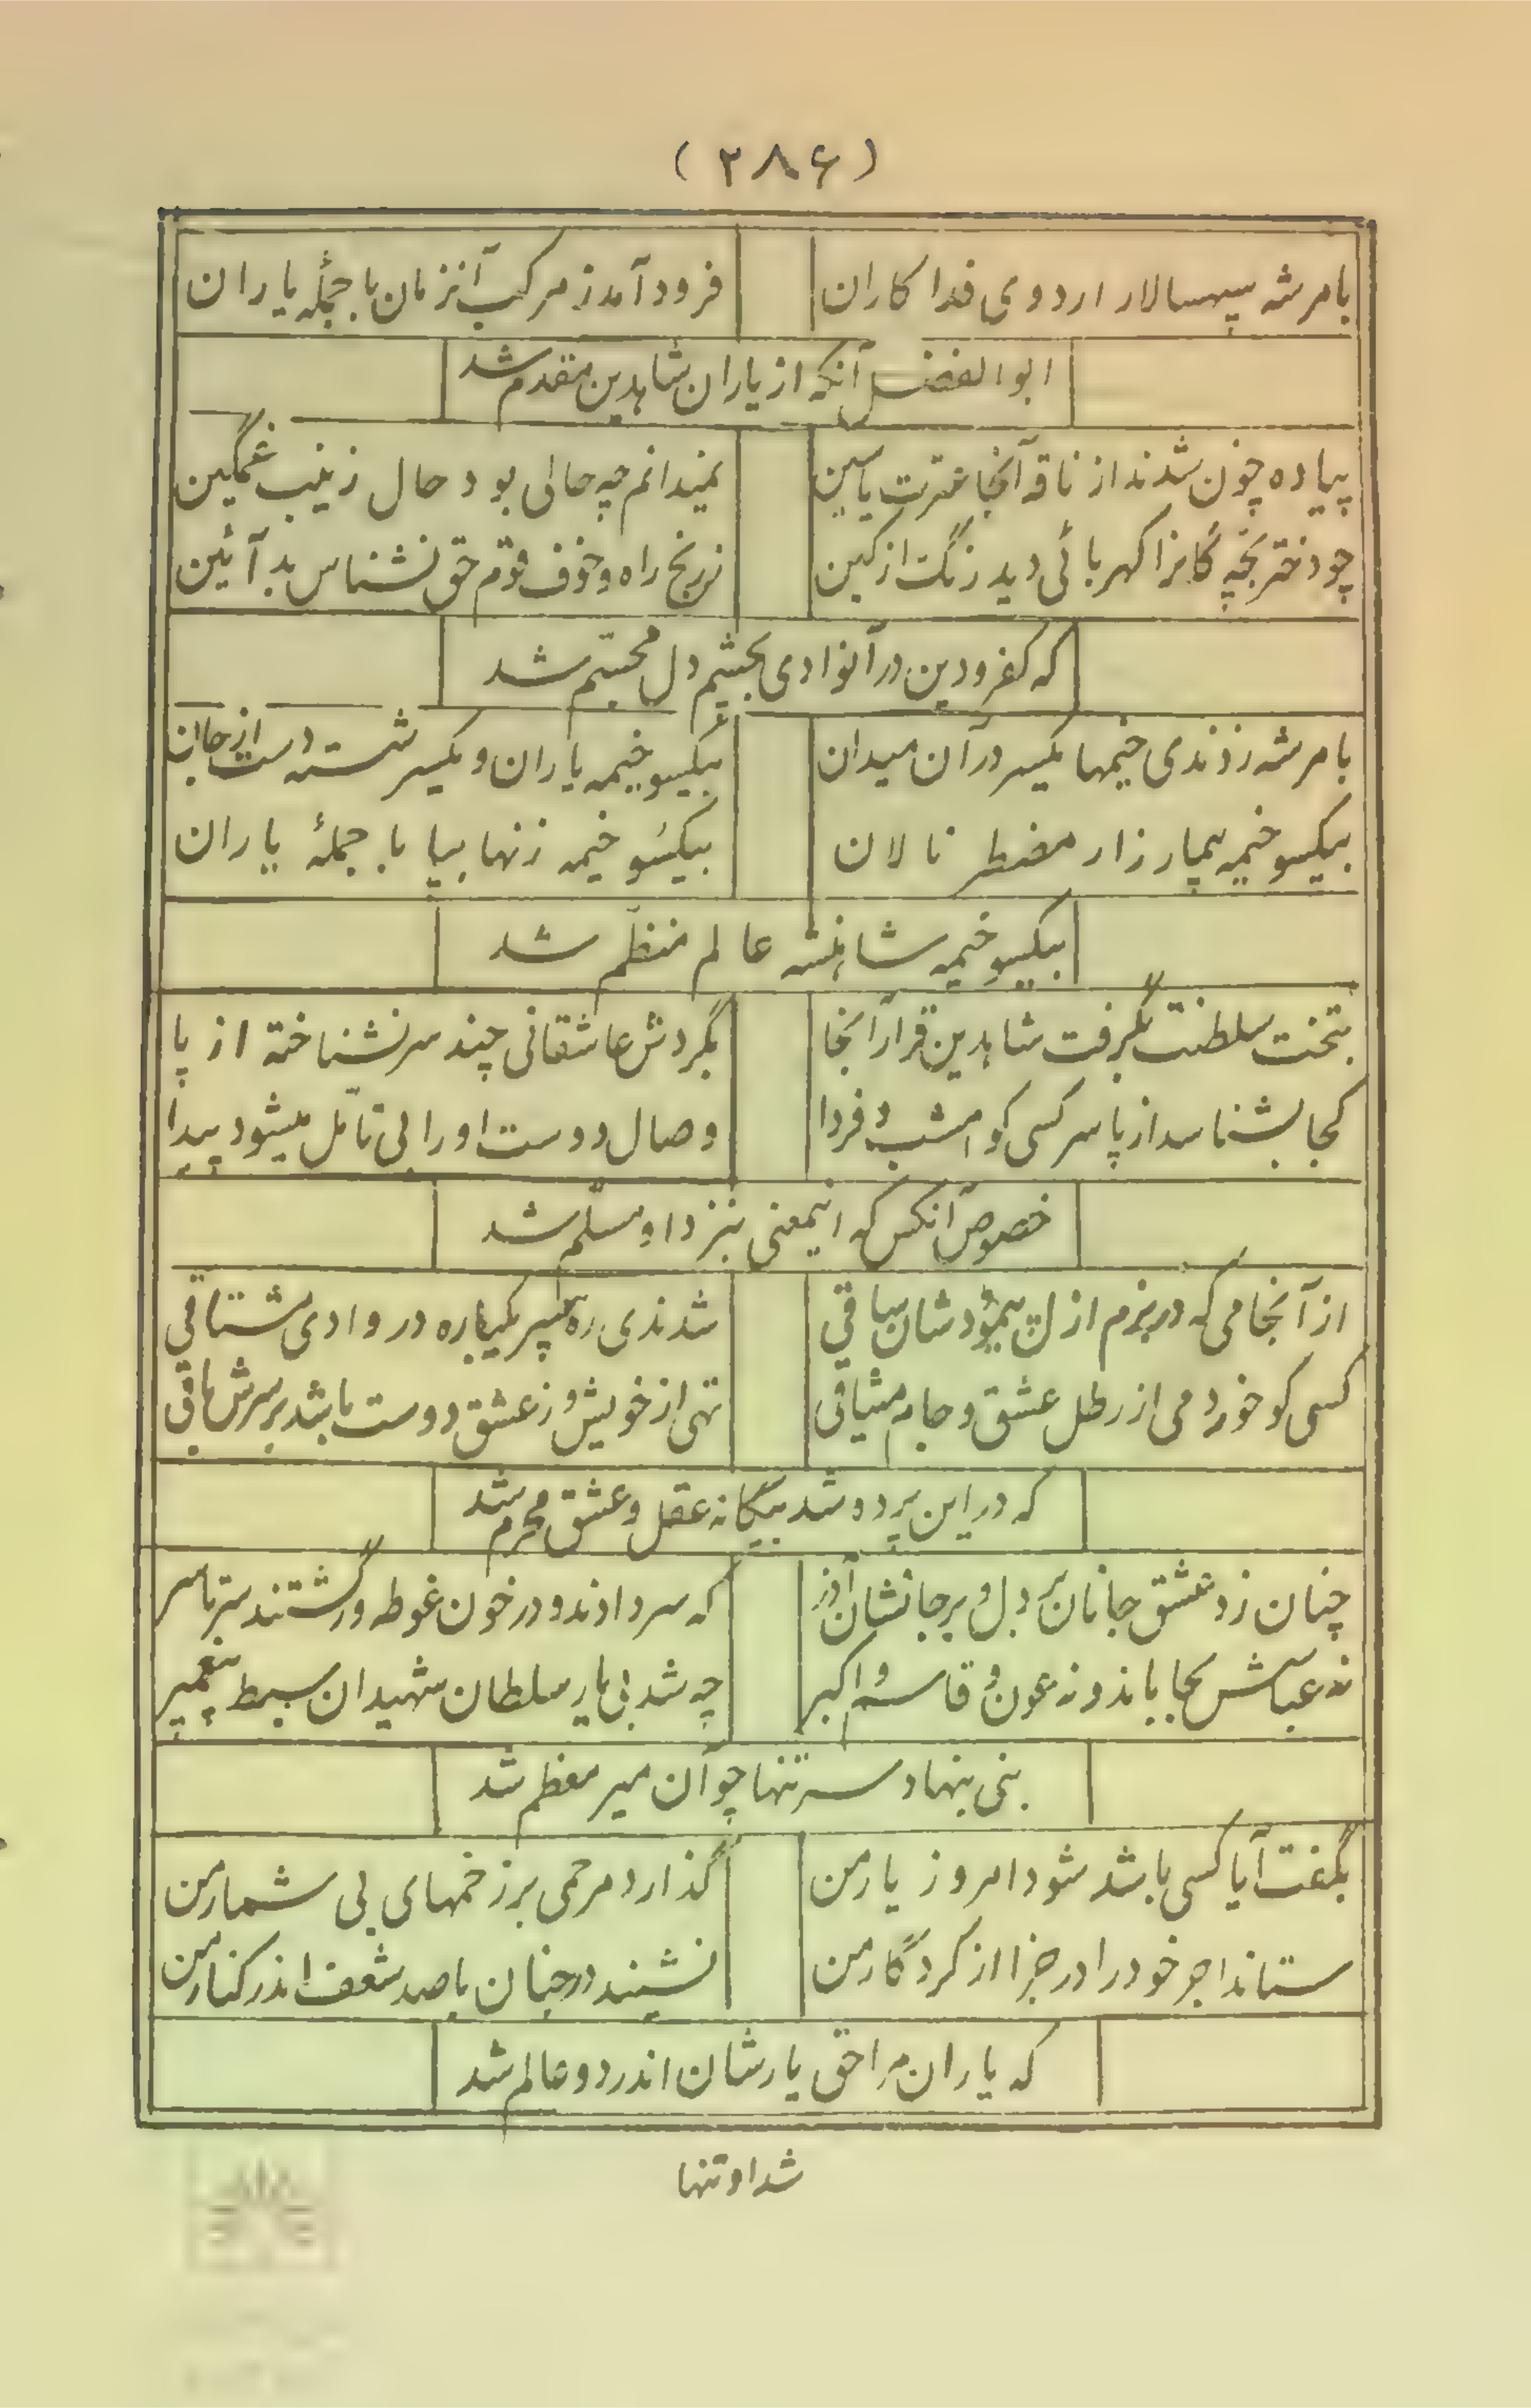 (۲۸۶)
بامرشه سپهسالار اردوی فداکاران فرود آمد ز مرکب آنزمان با جملۀ یاران
ابوالفضل آنکه از یاران شاهدین مقدم شد
پیاده چون شدند از ناقه آنجا عترت یاسین نمیدانم چه حالی بود حال زینب غمگین
چو دختر بچه گانرا کهربائی دید رنگ از کین ز رنج راه و خوف قوم حق نشناس بد آئین
که کفر و دین در آنوادی بچشم دل مجسّم شد
بامرشه زدندی خیمها یکسر در آن میدان بیکسو خیمه یاران و یکسر شسته دست از جان
بیکسو خیمه بیمار زار مضطر نالان بیکسو خیمه زنها بپا با جملۀ یاران
بیکسو خیمه شاهنشه عالم منظّم شد
بتخت سلطنت بگرفت شاهدین قرار آنجا بگردش عاشقانی چند سر نشناخته از پا
کجا بشناسد از پا سر کسی کو امشب و فردا وصال دوست او را بی تأمّل میشود پیدا
خصوص آنکس که اینمعنی بنزد او مسلّم شد
از آنجامی که در بزم ازل پیمودشان ساقی شدندی ره سپر یکباره در وادی مشتاقی
کسی کو خورد می از رطل عشق و جام میثاقی تهی از خویش و ز عشق دوست باشد بر سرش باقی
که در این پرده شد بیگانه عقل و عشق محرم شد
چنان زد عشق جانان بر دل و بر جانشان آذر که سر دادند و در خون غوطه ور گشتند سرتاسر
نه عباسش بجا باند و نه عون و قاسم و اکبر چه شد بی یار سلطان شهیدان سبط پیغمبر
بنی بنهاد سر تنها چو آن میر معظم شد
بگفت آیا کسی باشد شود امروز یار من گذارد مرحمی بر زخمهای بی شمار من
ستاند اجر خود را در جزا از کردگار من نشیند در جنان با صد شعف اندر کنار من
که یاران مرا حق یارشان اندر دو عالم شد
شد او تنها